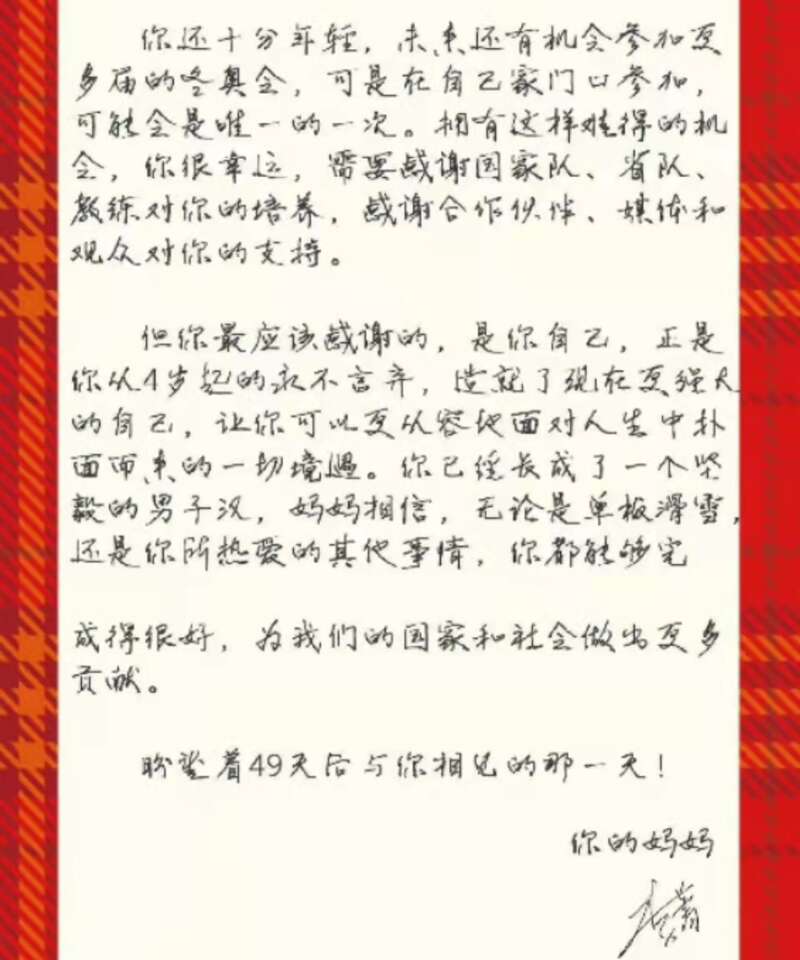 你还十分年轻，未来还有机会参加更
多届的冬奥会，可是在自己家门口参加，
可能会是唯一的一次。拥有这样难得的机
会，你很幸运，需要感谢国家队、省队、
教练对你的培养，感谢合作伙伴、媒体和
观众对你的支持。
但你最应该感谢的，是你自己，正是
你从4岁起的永不言弃，造就了现在更强大
的自己，让你可以更从容地面对人生中扑
面而来的一切境遇。你已经长成了一个坚
毅的男子汉，妈妈相信，无论是单板滑雪，
还是你所热爱的其他事情，你都能够完
成得很好，为我们的国家和社会做出更多
贡献。
盼望着49天后与你相见的那一天！
你的妈妈